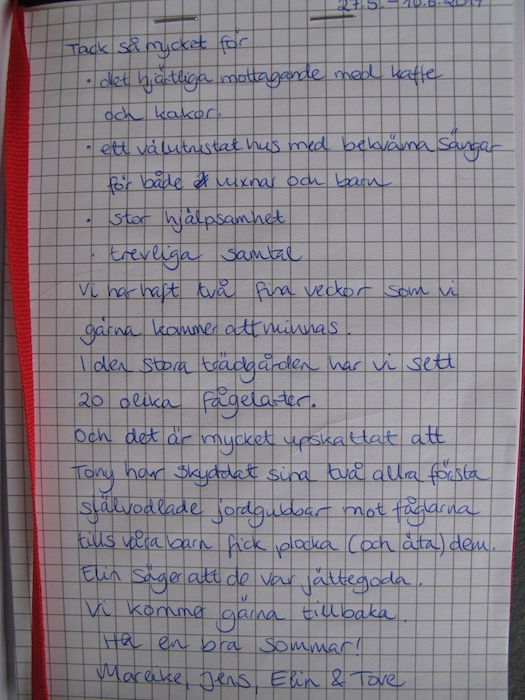 27.5. - 10.6.2014
Tack så mycket för
· det hjärtliga mottagande med kaffe
och kakor.
· ett välutrustat hus med bekväma sängar
för både vuxnar och barn
· stor hjälpsamhet
· trevliga samtal
Vi har haft två fina veckor som vi
gärna kommer att minnas.
I den stora trädgården har vi sett
20 olika fågelarter.
Och det är mycket upskattat att
Tony har skyddat sina två allra första
självodlade jordgubbar mot fåglarna
tills våra barn fick plocka (och äta) dem.
Elin säger att de var jättegoda.
Vi kommer gärna tillbaka.
Ha en bra sommar!
Mareike, Jens, Elin & Tove